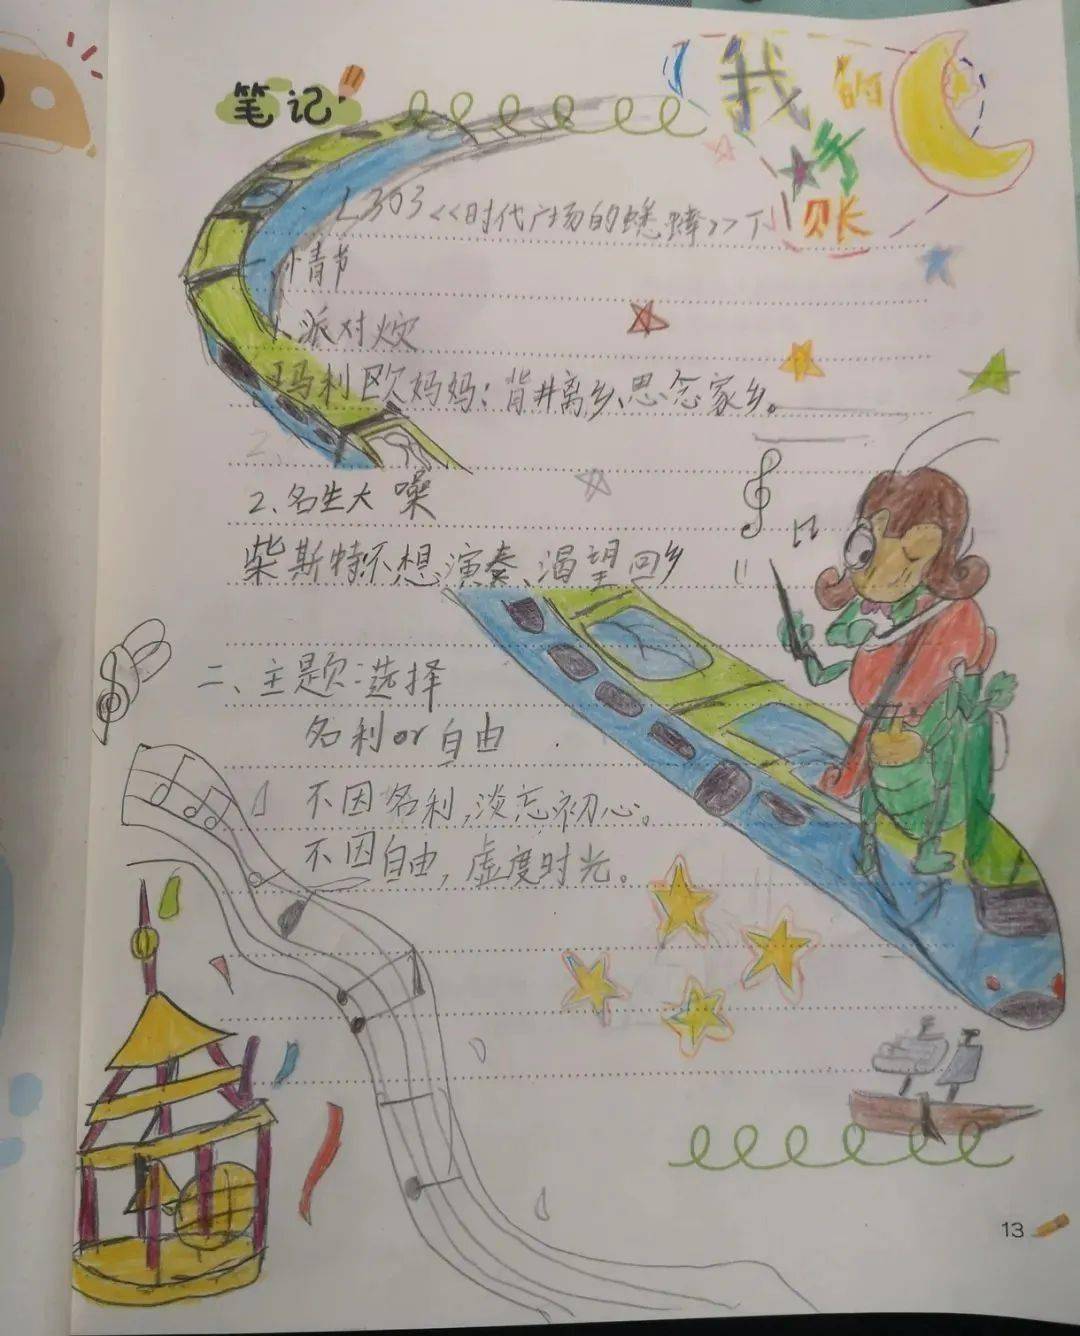 笔记
我的
手
账
L303《时代广场的蟋蟀》下
、情节
1、派对火灾
玛利欧妈妈：背井离乡、思念家乡。
2、
2、名生大噪
柴斯特不想演奏、渴望回乡
二、主题：选择
名利or自由
不因名利，淡忘初心。
不因自由，虚度时光。
13